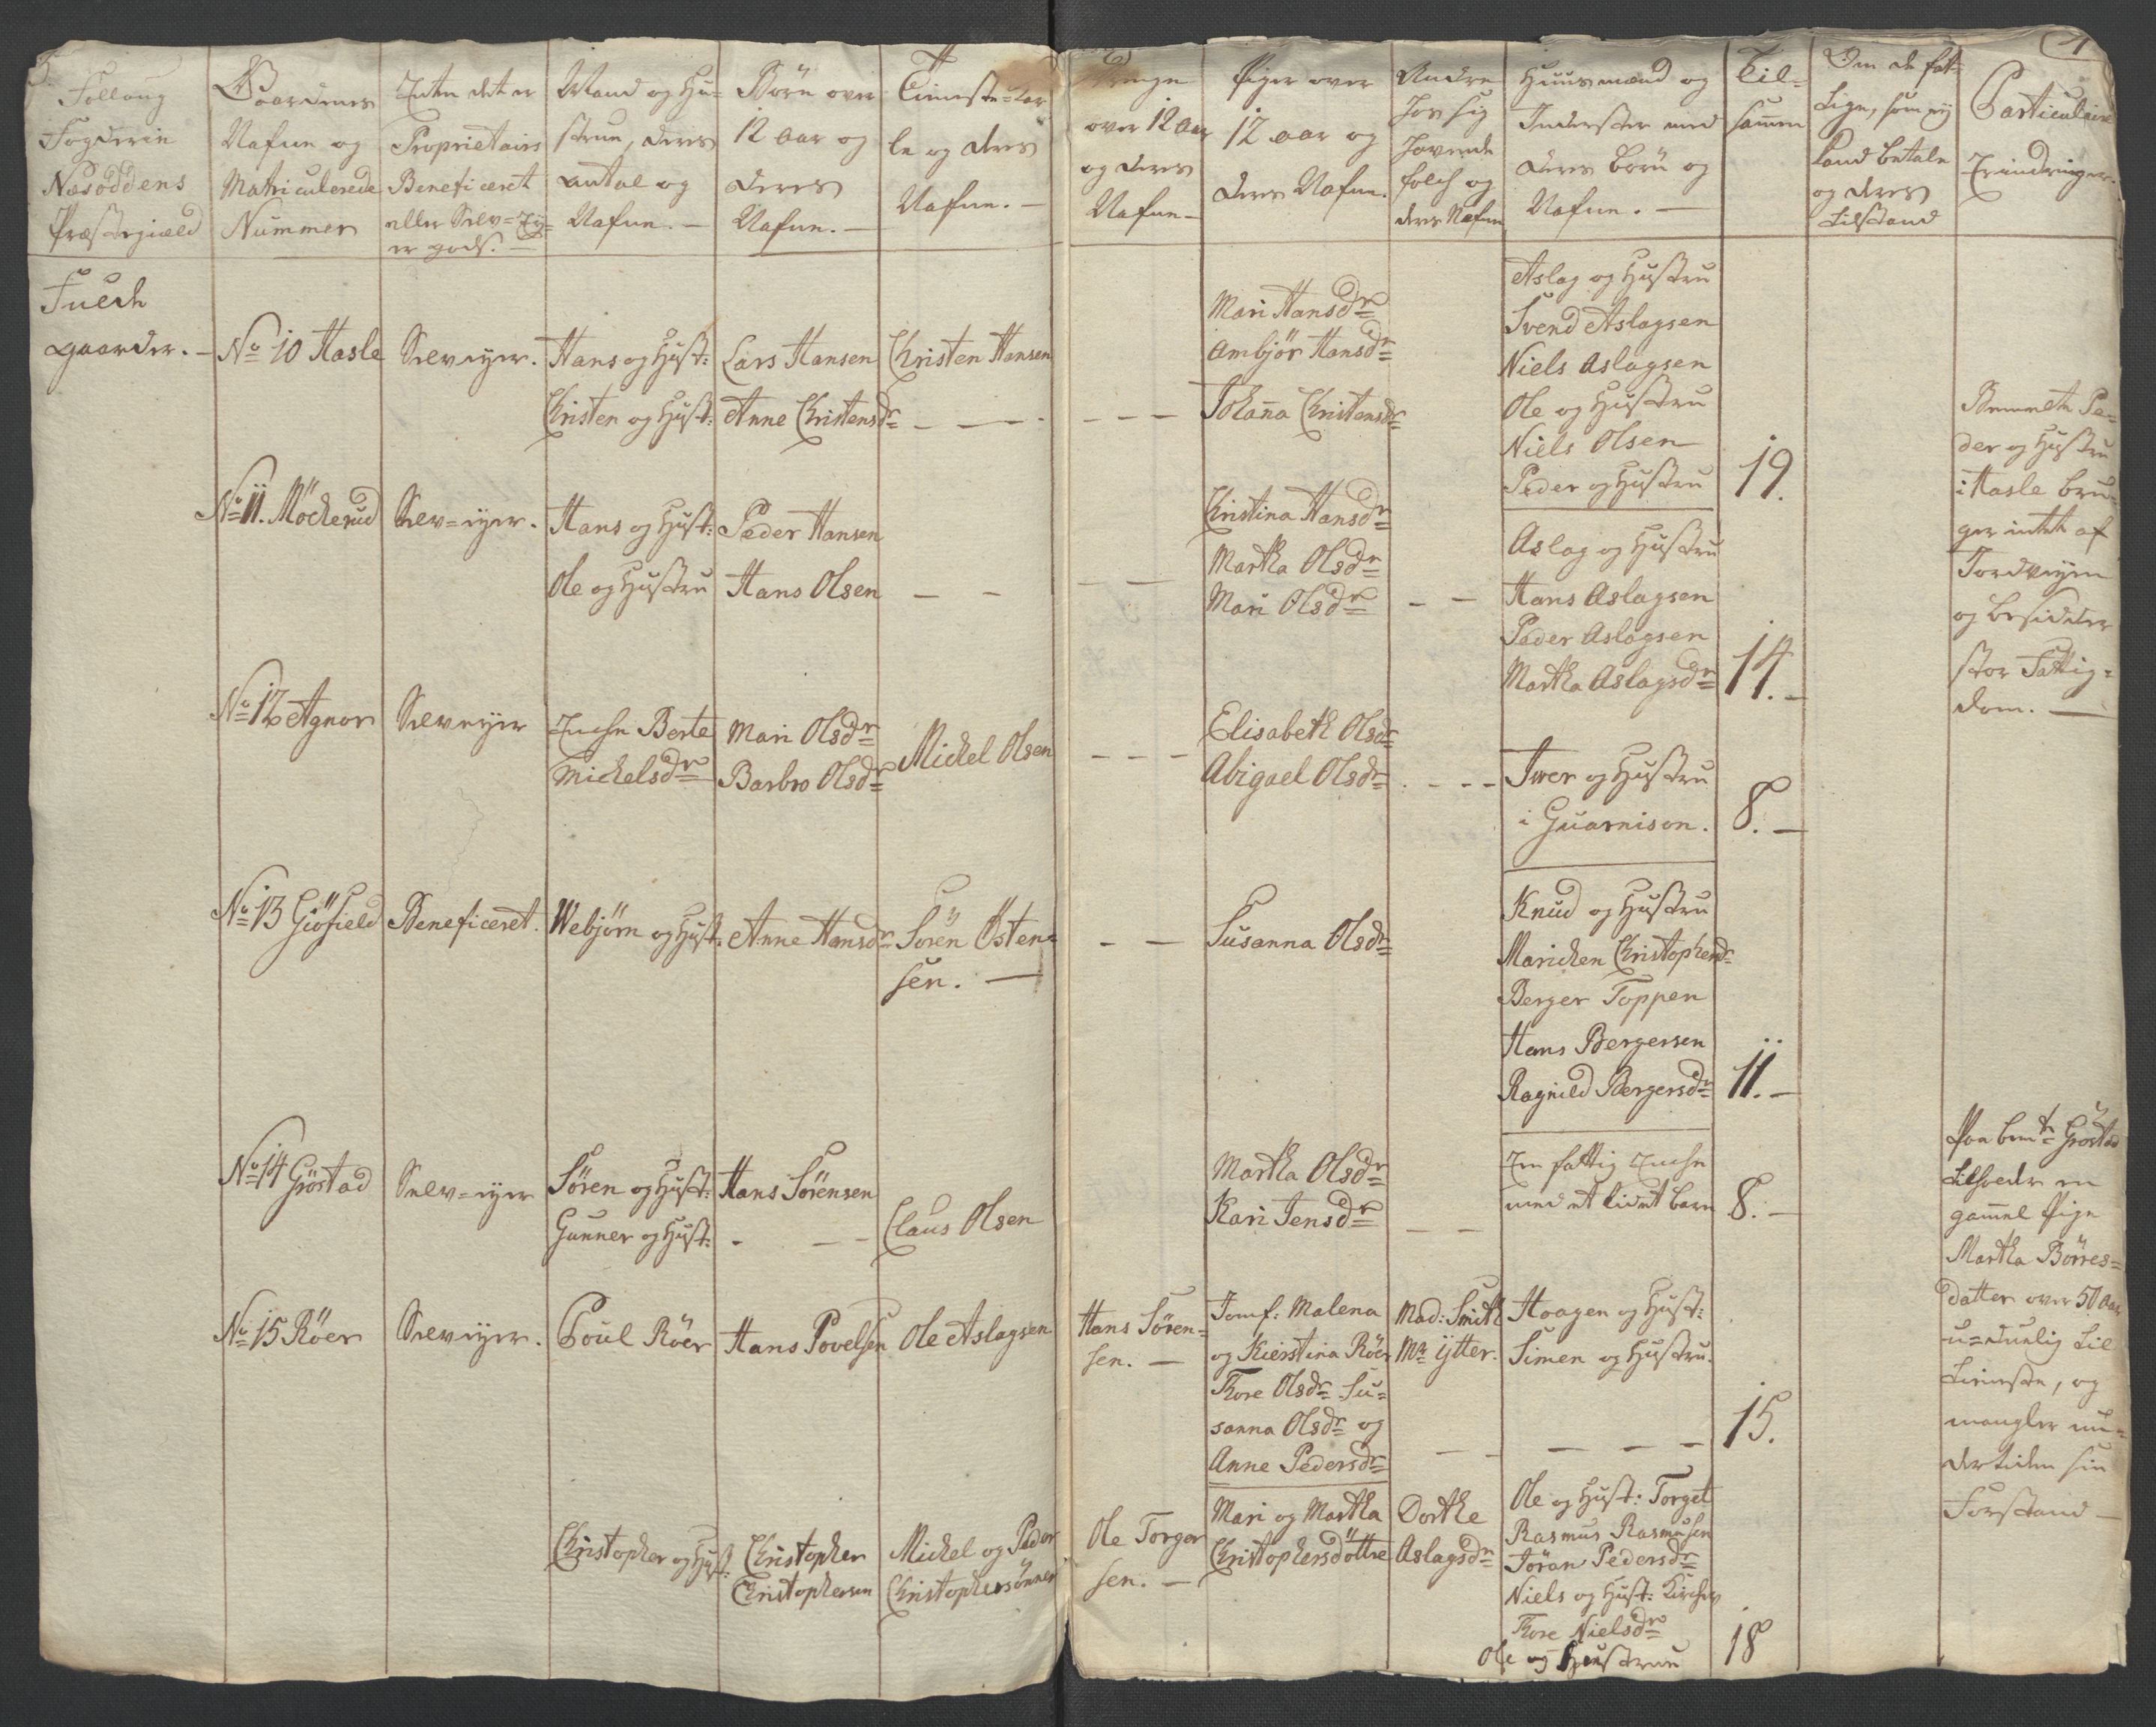 Folloug
Fogderie
Næsoddens
Præstegiæld
Gaardenes
Nafne og
Matriculerede
Nummer
Enten det er
Proprietairs
Beneficeret
eller Selv-Ey-
er gods. —
Mand og Hu-
strue, deres
antal og
Nafne. —
Børn over
12 aar og
deres
Nafne. —
Tieneste-Kar
le og deres
Nafne. —
Drenge
over 12 aar
og deres
Nafne —
Piger over
12 aar og
deres Nafne.
Andre
hos sig
havende
folch og
deres Nafne
Huusmænd og
Inderster med
deres börn og
Nafne. —
Til-
sammen
Den de fat-
tige, som ej
kand betale
og deres
tilstand
Particulaire
Erindringer.
1
Fuede
gaarder. —
No 10 Hasle
Selveyer.
Hans og Hust:
Christen og Hust:
Lars Hansen
Anne Christensdr
Christen Hansen
Mari Hansdr
Ambjör Hansdr
Johanna Christensdr
Aslag og Hustru
Svend Aslagsen
Niels Aslagsen
Ole og Hustru
Niels Olsen
Peder og Hustru
19.
Bemmelte Pe-
der og Hustru
i Hasle bru-
ger intet af
Jordvejen
og besidder
stor Fattig-
dom. —
No 11. Möckerud
Selv-eyer.
Hans og Hust:
Ole og Hustru
Peder Hansen
Hans Olsen
Christina Hansdr
Martha Olsdr
Mari Olsdr
Aslag og Hustru
Hans Aslagsen
Peder Aslagsen
Martha Aslagsdr
14. —
No 12 Agnor
Selveyer
Enche Berte
Michelsdr
Mari Olsdr
Barbro Olsdr
Michel Olsen
Elisabeth Olsdr
Abigael Olsdr
Iwer og Hustru
i Guarnison.
8. —
No 13 Giöfield
Beneficeret.
Webjörn og Hust:
Anne Hansdr
Sören Östen-
sen. —
Susanna Olsdr
Knud og Hustru
Marichen Christophersdr
Berger Toppen
Hans Bergersen
Ragnild Bergersdr
11. —
No 14 Gröstad
Selv-eyer
Sören og Hust:
Gunner og Hust:
Hans Sörensen
Claus Olsen
Martha Olsdr
Kari Jensdr
En fattig Enche
med et lidet barn
8. —
Paa bemte Gröstad
tilholder en
gammel Pige
Martha Börres-
datter over 50 Aar
u-duelig til
tieneste, og
mangler un-
dertiden sin
Forstand —
No 15 Röer
Selveyer.
Poul Röer
Hans Povelsen
Ole Aslagsen
Hans Sören-
sen. —
Jomf: Malena
og Kierstina Röer
Thore Olsdr Su-
sanna Olsdr og
Anne Pedersdr
Mad: Smith
Mr Ytter.
Haagen og Hust:
Simen og Hustru.
15.
Christopher og Hust:
Christopher
Christophersen
Michel og Peder
Christophersönner
Ole Torger
sen. —
Mari og Martha
Christophersdöttre
Dorthe
Aslagsdr
Ole og Hust: Torget
Rasmus Rasmusen
Jöran Pedersdr
Niels og Hust:
Thore Nielsdr
Ole og Hustrue
18